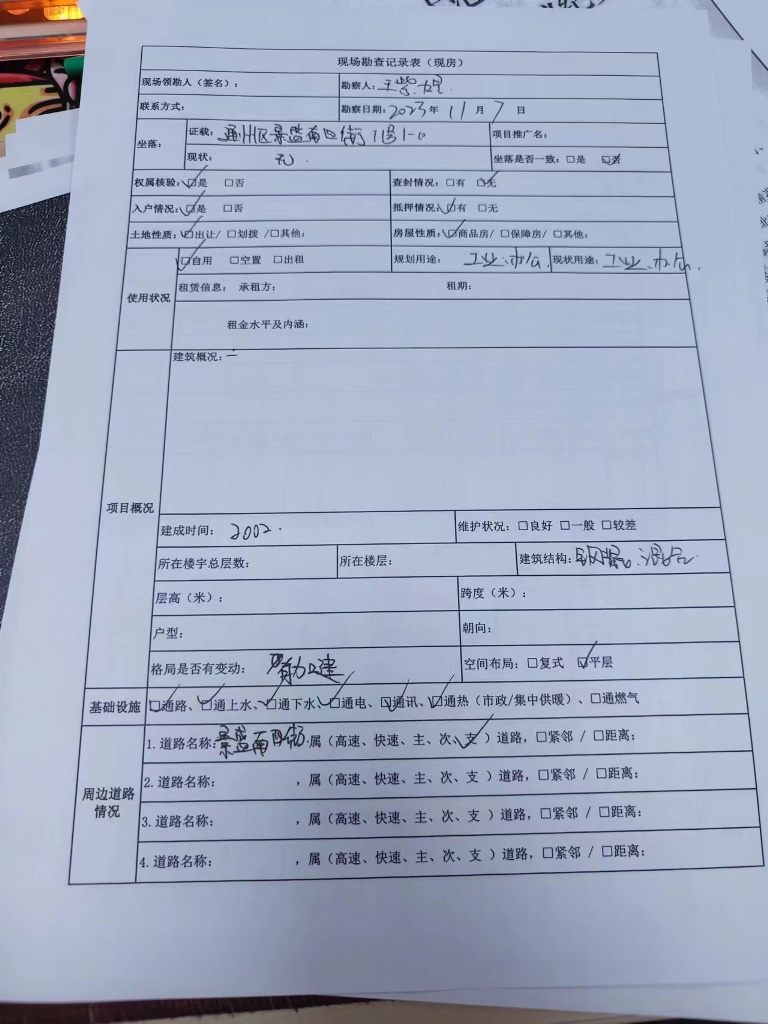 现场勘查记录表（现房）
现场领勘人（签名）： 勘察人：
联系方式： 勘察日期：2023年 11月 7日
坐落： 证载：通州区景盛南四街1号1-10 项目推广名：
现状：无. 坐落是否一致：□是 ☑否
权属核验：☑是 □否 查封情况：□有 ☑无
入户情况：☑是 □否 抵押情况：☑有 □无
土地性质：☑出让/ □划拨 /□其他： 房屋性质：☑商品房/ □保障房/ □其他：
使用状况 ☑自用 □空置 □出租 规划用途：工业.办公 现状用途：工业.办公.
租赁信息： 承租方： 租期：
租金水平及内涵：
项目概况 建筑概况：
建成时间：2002. 维护状况：□良好 □一般 □较差
所在楼宇总层数： 所在楼层： 建筑结构：钢混.混合.
层高（米）： 跨度（米）：
户型： 朝向：
格局是否有变动： 空间布局：□复式 ☑平层
基础设施 ☑通路、☑通上水、☑通下水、☑通电、☑通讯、☑通热（市政/集中供暖）、□通燃气
周边道路情况 1.道路名称：景盛南四街，属（高速、快速、主、次、支✓）道路，□紧邻 / □距离：
2.道路名称： ，属（高速、快速、主、次、支 ）道路，□紧邻 / □距离：
3.道路名称： ，属（高速、快速、主、次、支 ）道路，□紧邻 / □距离：
4.道路名称： ，属（高速、快速、主、次、支 ）道路，□紧邻 / □距离：